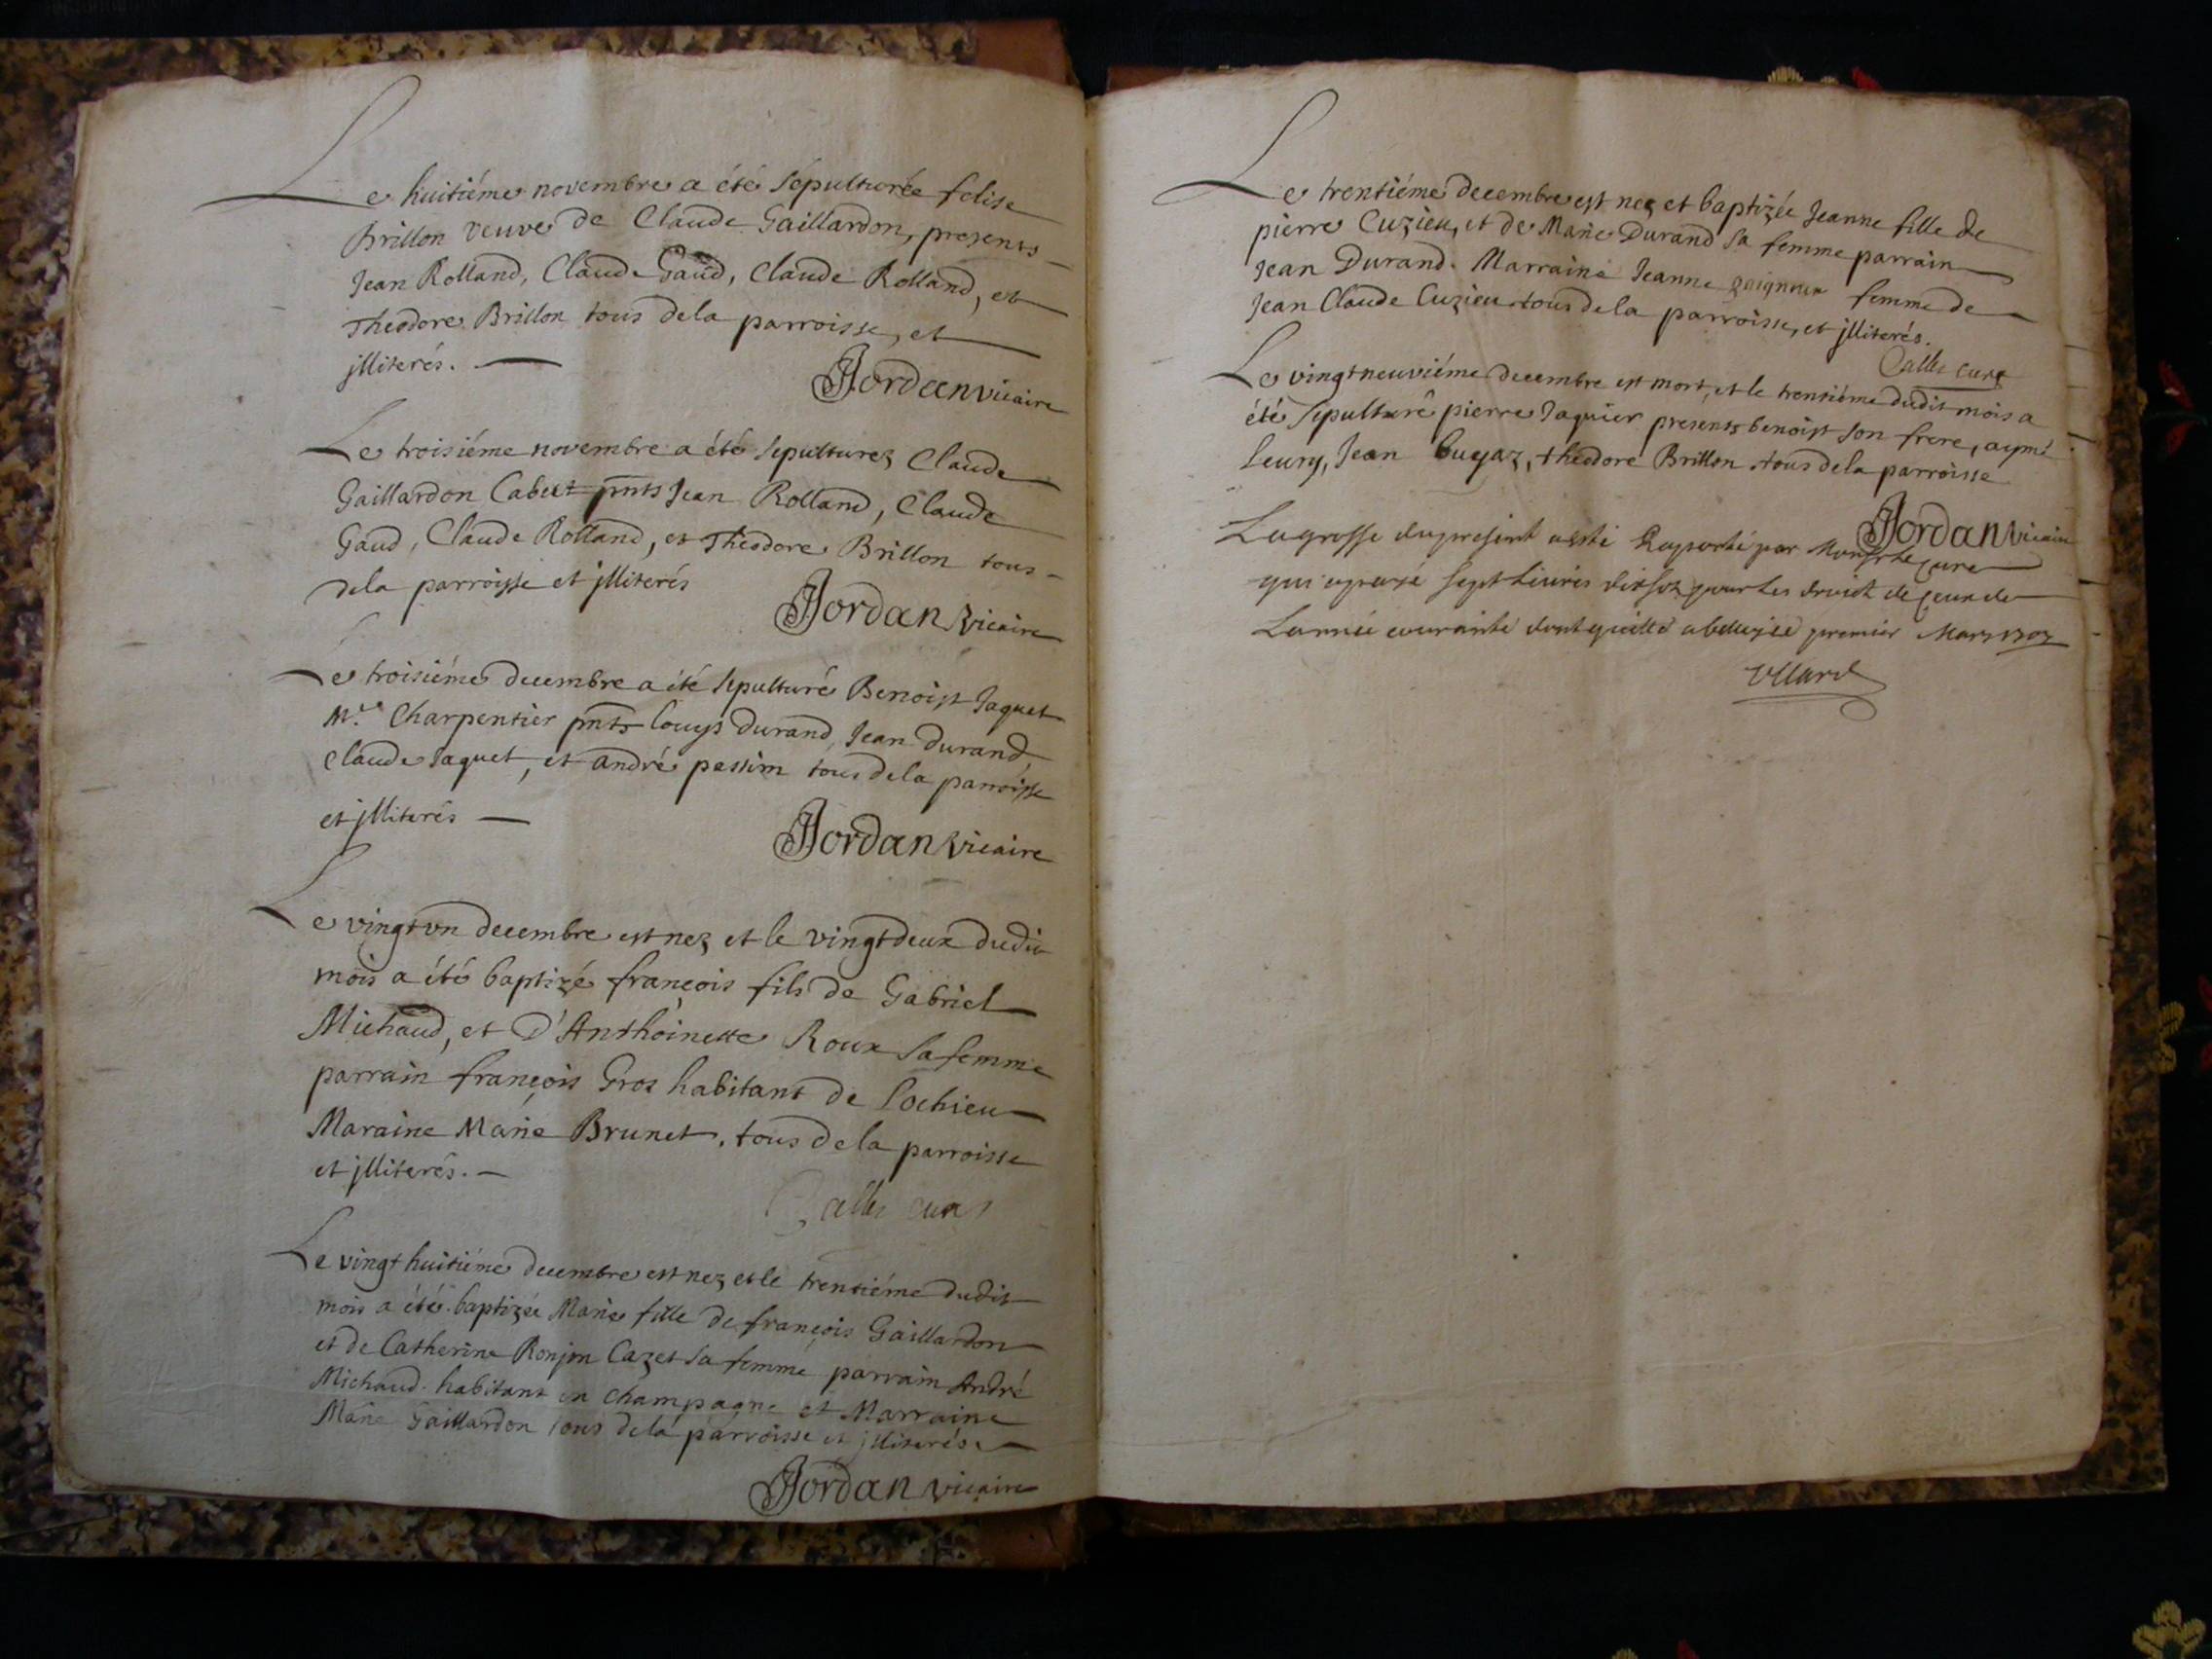 Le huitiéme novembre a été sépulturée felise
Brillon veuve de Claude Gaillardon, presents
Jean Rolland, Claude Gaud, Claude Rolland, et
Theodore Brillon tous dela parroisse, et
jlliterés.
Jordan vicaire
Le troisiéme novembre a été sepulturez Claude
Gaillardon Cabert pnts Jean Rolland, Claude
Gaud, Claude Rolland, et Theodore Brillon tous
dela parroisse et jlliterés
Jordan vicaire
Le troisiéme decembre a été sepulturé Benoist Jaquet
Mre Charpentier pnts louys Durand, Jean Durand,
Claude Jaquet, et andré passim tous dela parroisse
et jlliterés
Jordan vicaire
Le vingt vn decembre est nez et le vingtdeux dudit
mois a été baptizé françois fils de Gabriel
Michaud, et D'Anthoinette Roux sa femme
parrain françois Gros habitant de Lochieu
Maraine Marie Brunet. tous dela parroisse
et jlliterés.
Calles curé
Le vingt huitiéme decembre est nez et le trentiéme dudit
mois a été baptizée Marie fille de françois Gaillardon
et de Catherine Ronjon Cazet sa femme parrain André
Michaud habitant en champagne et Marraine
Marie Gaillardon tous dela parroisse et jlliterés.
Jordan vicaire
Le trentiéme decembre est nez et baptizée Jeanne fille de
pierre Cuzieu, et de Marie Durand sa femme parrain
Jean Durand. Marraine Jeanne femme de
Jean Claude Cuzieu tous dela parroisse, et jlliterés.
Calles curé
Le vingtneuviéme decembre est mort, et le trentiéme dudit mois a
été sepulturé pierre Jaquier presents benoist son frere, aymé
Leury, Jean bugaz, theodore Brillon tous dela parroisse
Jordan vicaire
La grosse du present a esté Raporté par Monsr le curé
qui a payé sept livres dix solz pour les droict de ceux de
L'année courante dont quitté a belley le premier Mars 1703